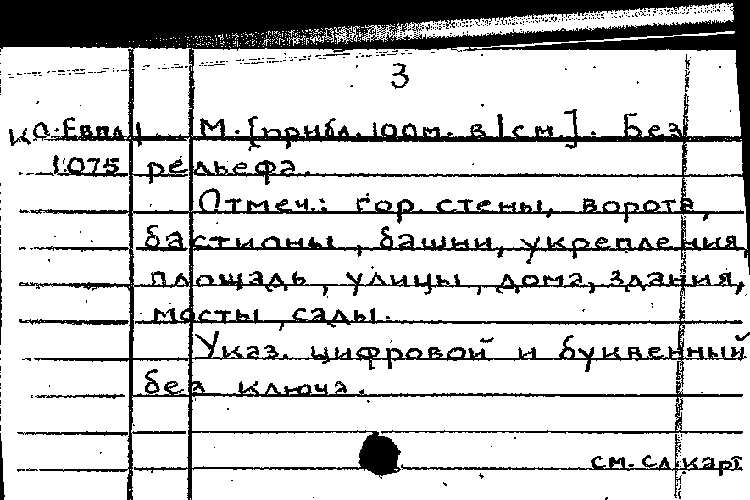 3
М. [прибл. 100м. в 1см.]. Без
1075 рельефа.
Отмеч.: гор. стены, ворота,
бастионы, башни, укрепления,
площадь, улицы, дома, здания,
мосты, сады.
Указ. цифровой и буквенный
без ключа.
см. сл. карт